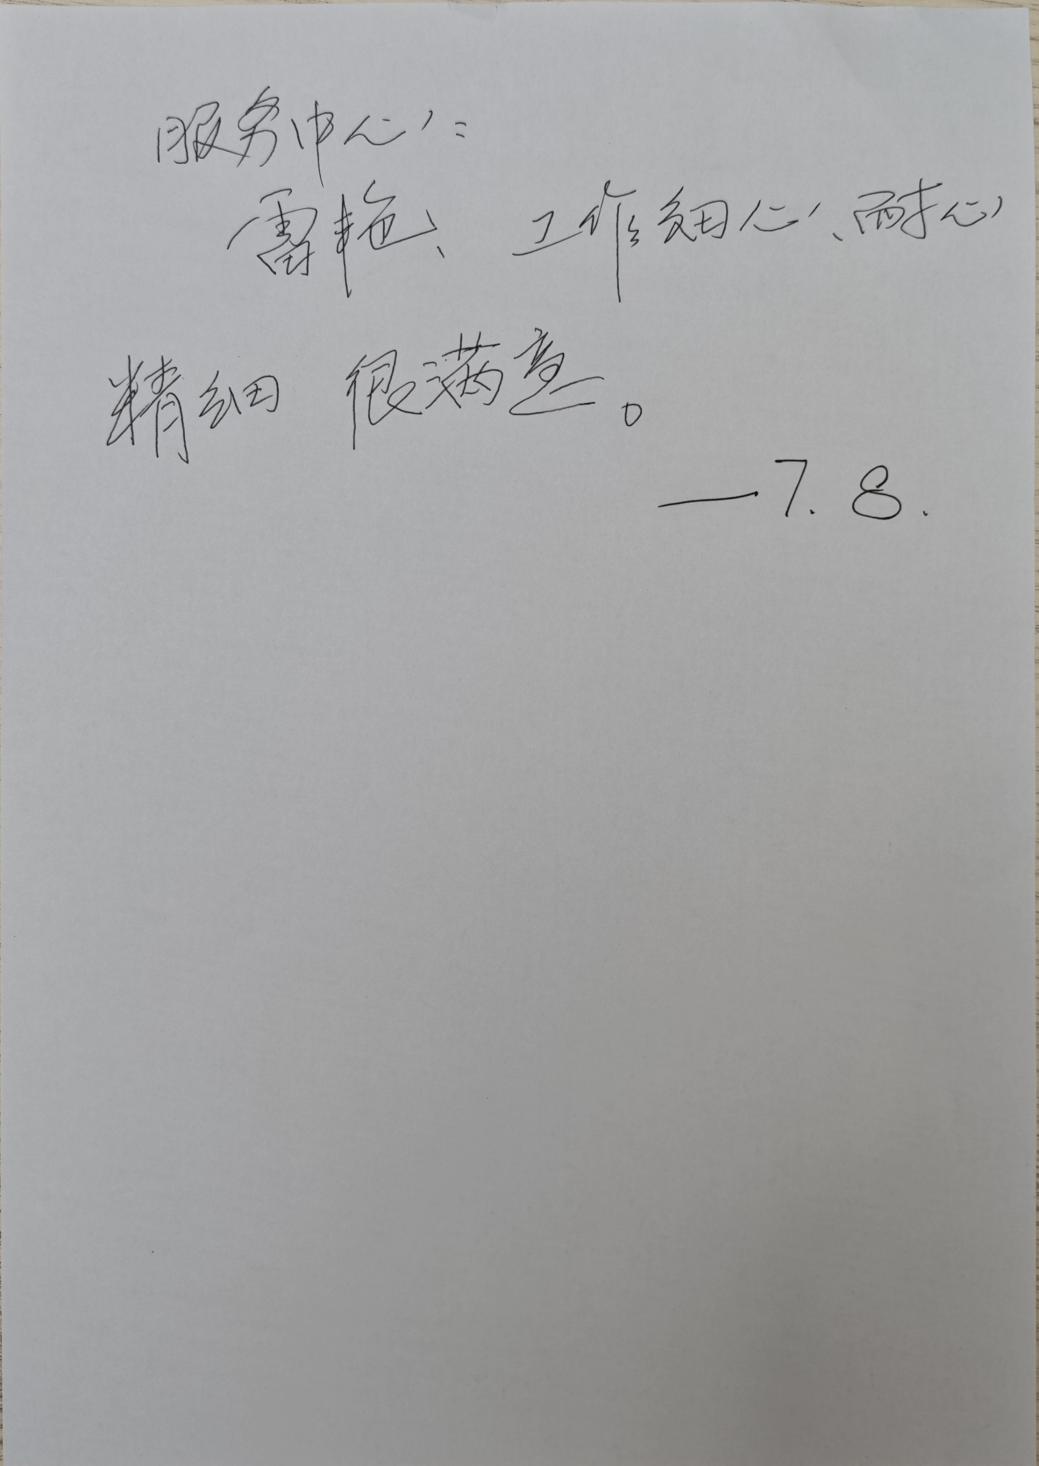 服务中心:
雷艳、工作细心、耐心
精细 很满意。
—7.8.